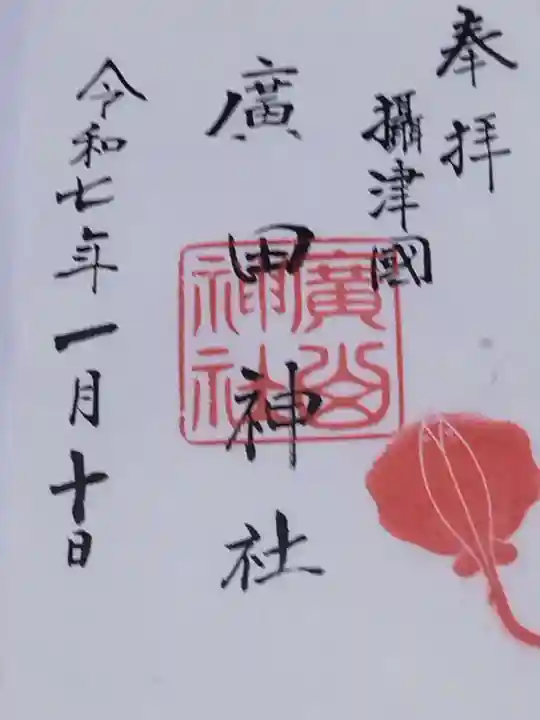 奉拝
攝津國
廣田神社
令和七年一月十日
神社